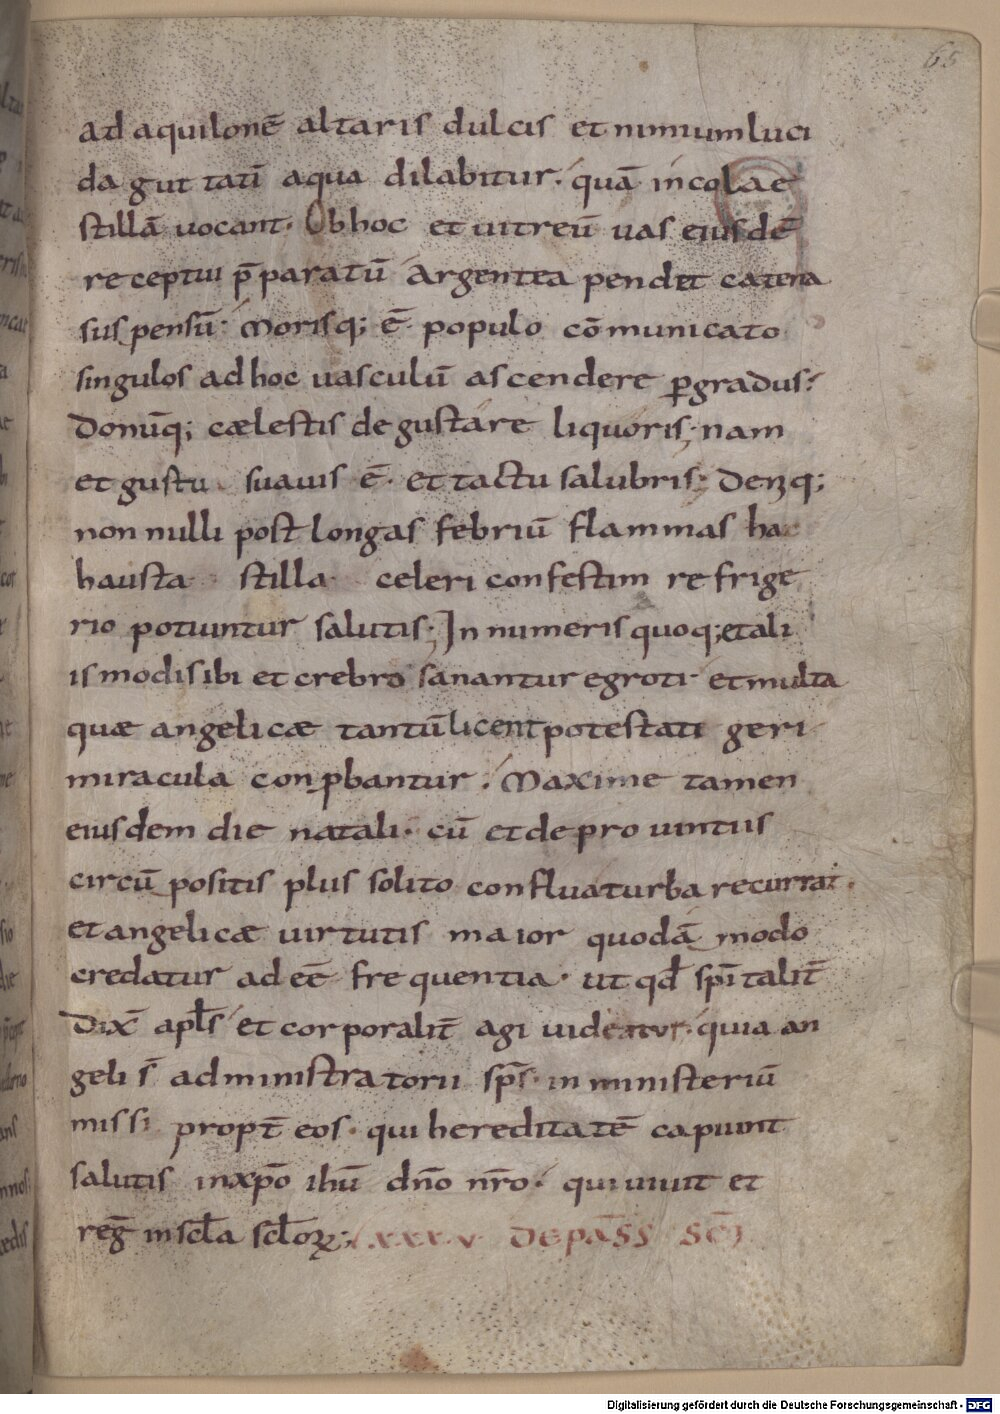 65
ad aquilonē altaris dulcis et nimium luci
da guttatī aqua dilabitur. quā incolae
stillā uocant. Ob hoc et uitreū uas eiusdē
receptui p̄paratū argentea pendet catena
suspensū. Morisq; ē populo cōmunicato
singulos ad hoc uasculū ascendere ꝑ gradus.
donūq; cælestis degustare liquoris; nam
et gustu suauis ē. et tactu salubris; Deniq;
non nulli post longas febriū flammas ha
hausta stilla celeri confestim refrige
rio potiuntur salutis; In numeris quoq; et ali
is modis ibi et crebro sanantur egroti. et multa
quæ angelicæ tantū licent potestati geri
miracula conꝓbantur. Maxime tamen
eiusdem die natali. cū et de prouintiis
circū positis plus solito conflua turba recurrat.
et angelicæ uirtutis maior quodā modo
credatur adeē frequentia. ut qđ spītalit̄
dix̄ apłs et corporalit̄ agi uideatur. quia an
geli s̄ administratorii sp̄s. in ministeriū
missi propt̄ eos. qui hereditatē capiunt
salutis in xp̄o ihū dn̄o nr̄o. qui uiuit et
reḡ in scła scłoꝝ; LXXXV DE PASS SC̄I
Digitalisierung gefördert durch die Deutsche Forschungsgemeinschaft - DFG